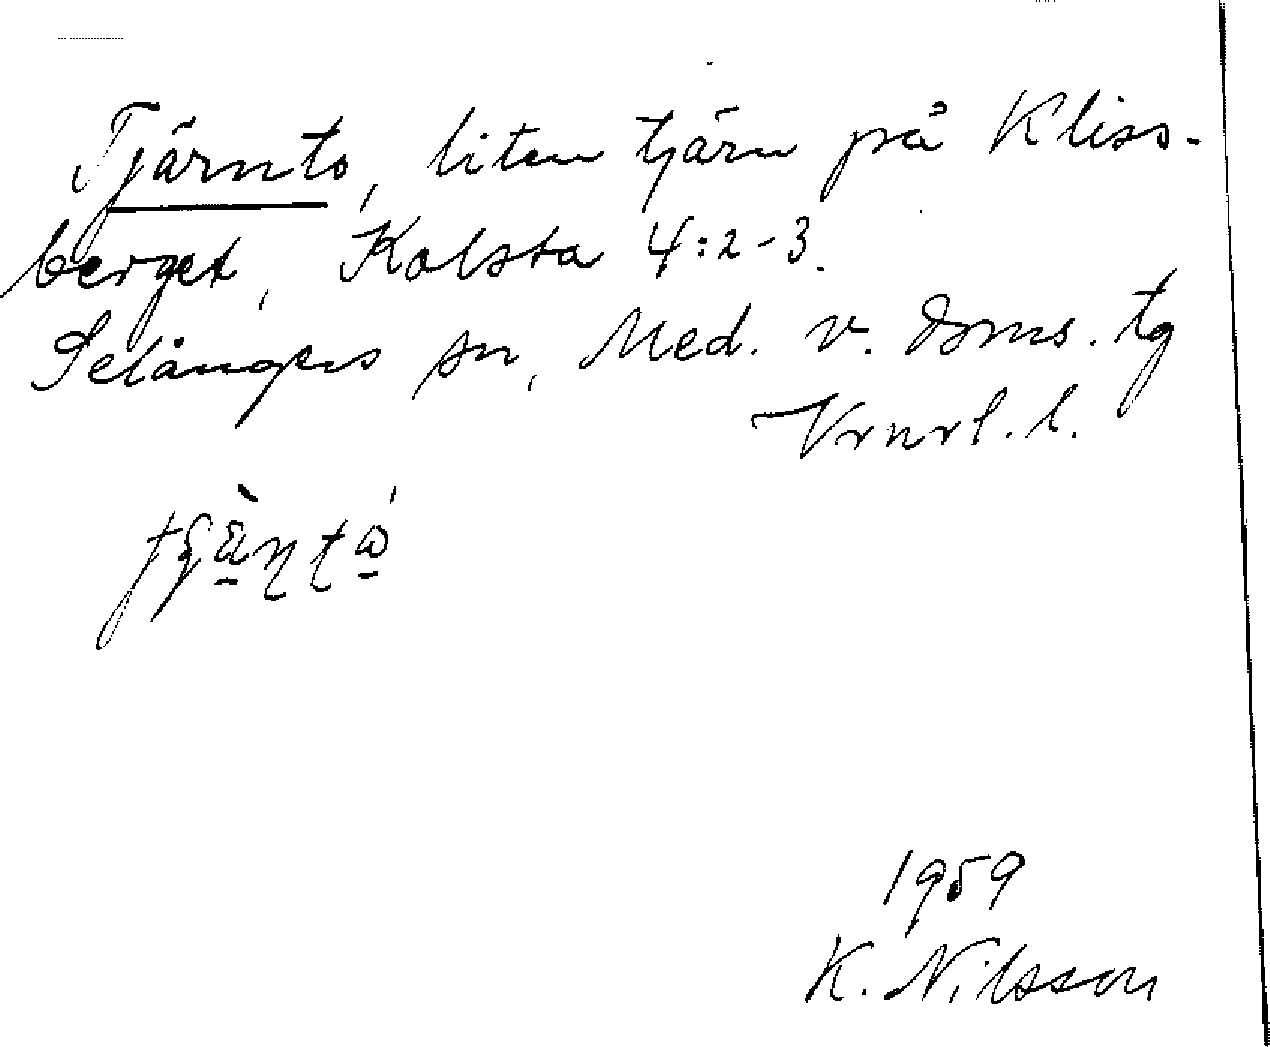 Tjärnto, liten tjärn på Kliss-
berget, Kolsta 4:2-3.
Selångers sn, Med. v. doms. tg
Vrnrl. l.
1959
K. Nilsson